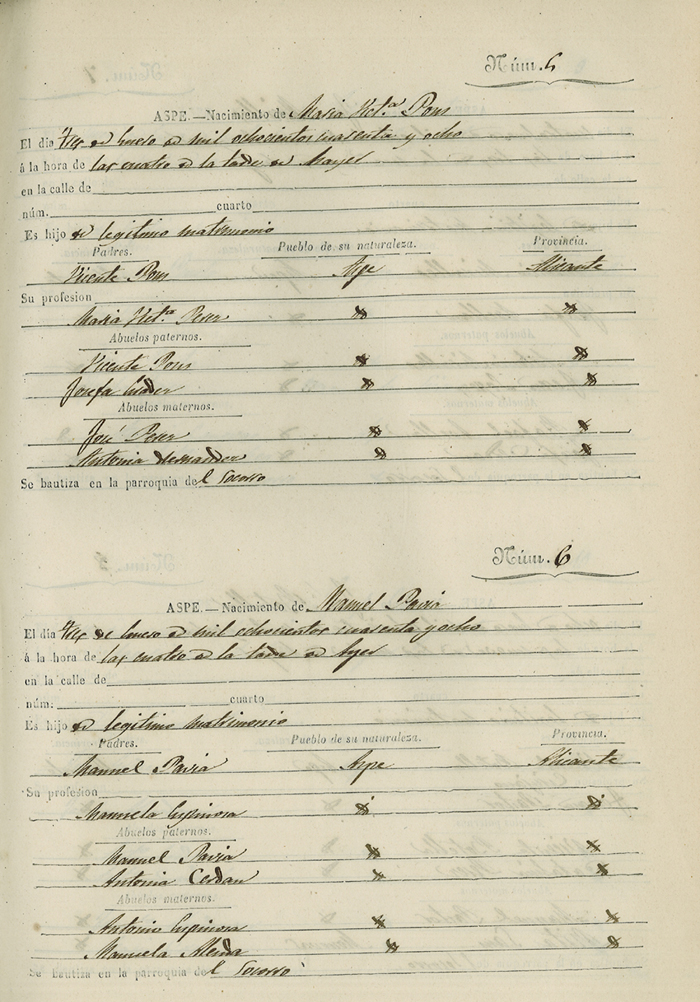 Núm. 5
ASPE.—Nacimiento de Maria Vct.ª Pons
El dia tres de Enero de mil ochocientos cuarenta y ocho
á la hora de las cuatro de la tarde de
en la calle de
núm. cuarto
Es hijo de legitimo matrimonio
Padres. Pueblo de su naturaleza. Provincia.
Vicente Pons Aspe Alicante
Su profesion
Maria Vct.ª Perez
Abuelos paternos.
Vicente Pons
Josefa
Abuelos maternos.
José Perez
Antonia
Se bautiza en la parroquia del Socorro
Núm. 6
ASPE.—Nacimiento de Manuel Pavia
El dia tres de Enero de mil ochocientos cuarenta y ocho
á la hora de las cuatro de la tarde de Ayer
en la calle de
núm. cuarto
Es hijo de legitimo matrimonio
Padres. Pueblo de su naturaleza. Provincia.
Manuel Pavia Aspe Alicante
Su profesion
Manuela Espinosa
Abuelos paternos.
Manuel Pavia
Antonia Cerdan
Abuelos maternos.
Antonio Espinosa
Manuela
Se bautiza en la parroquia del Socorro